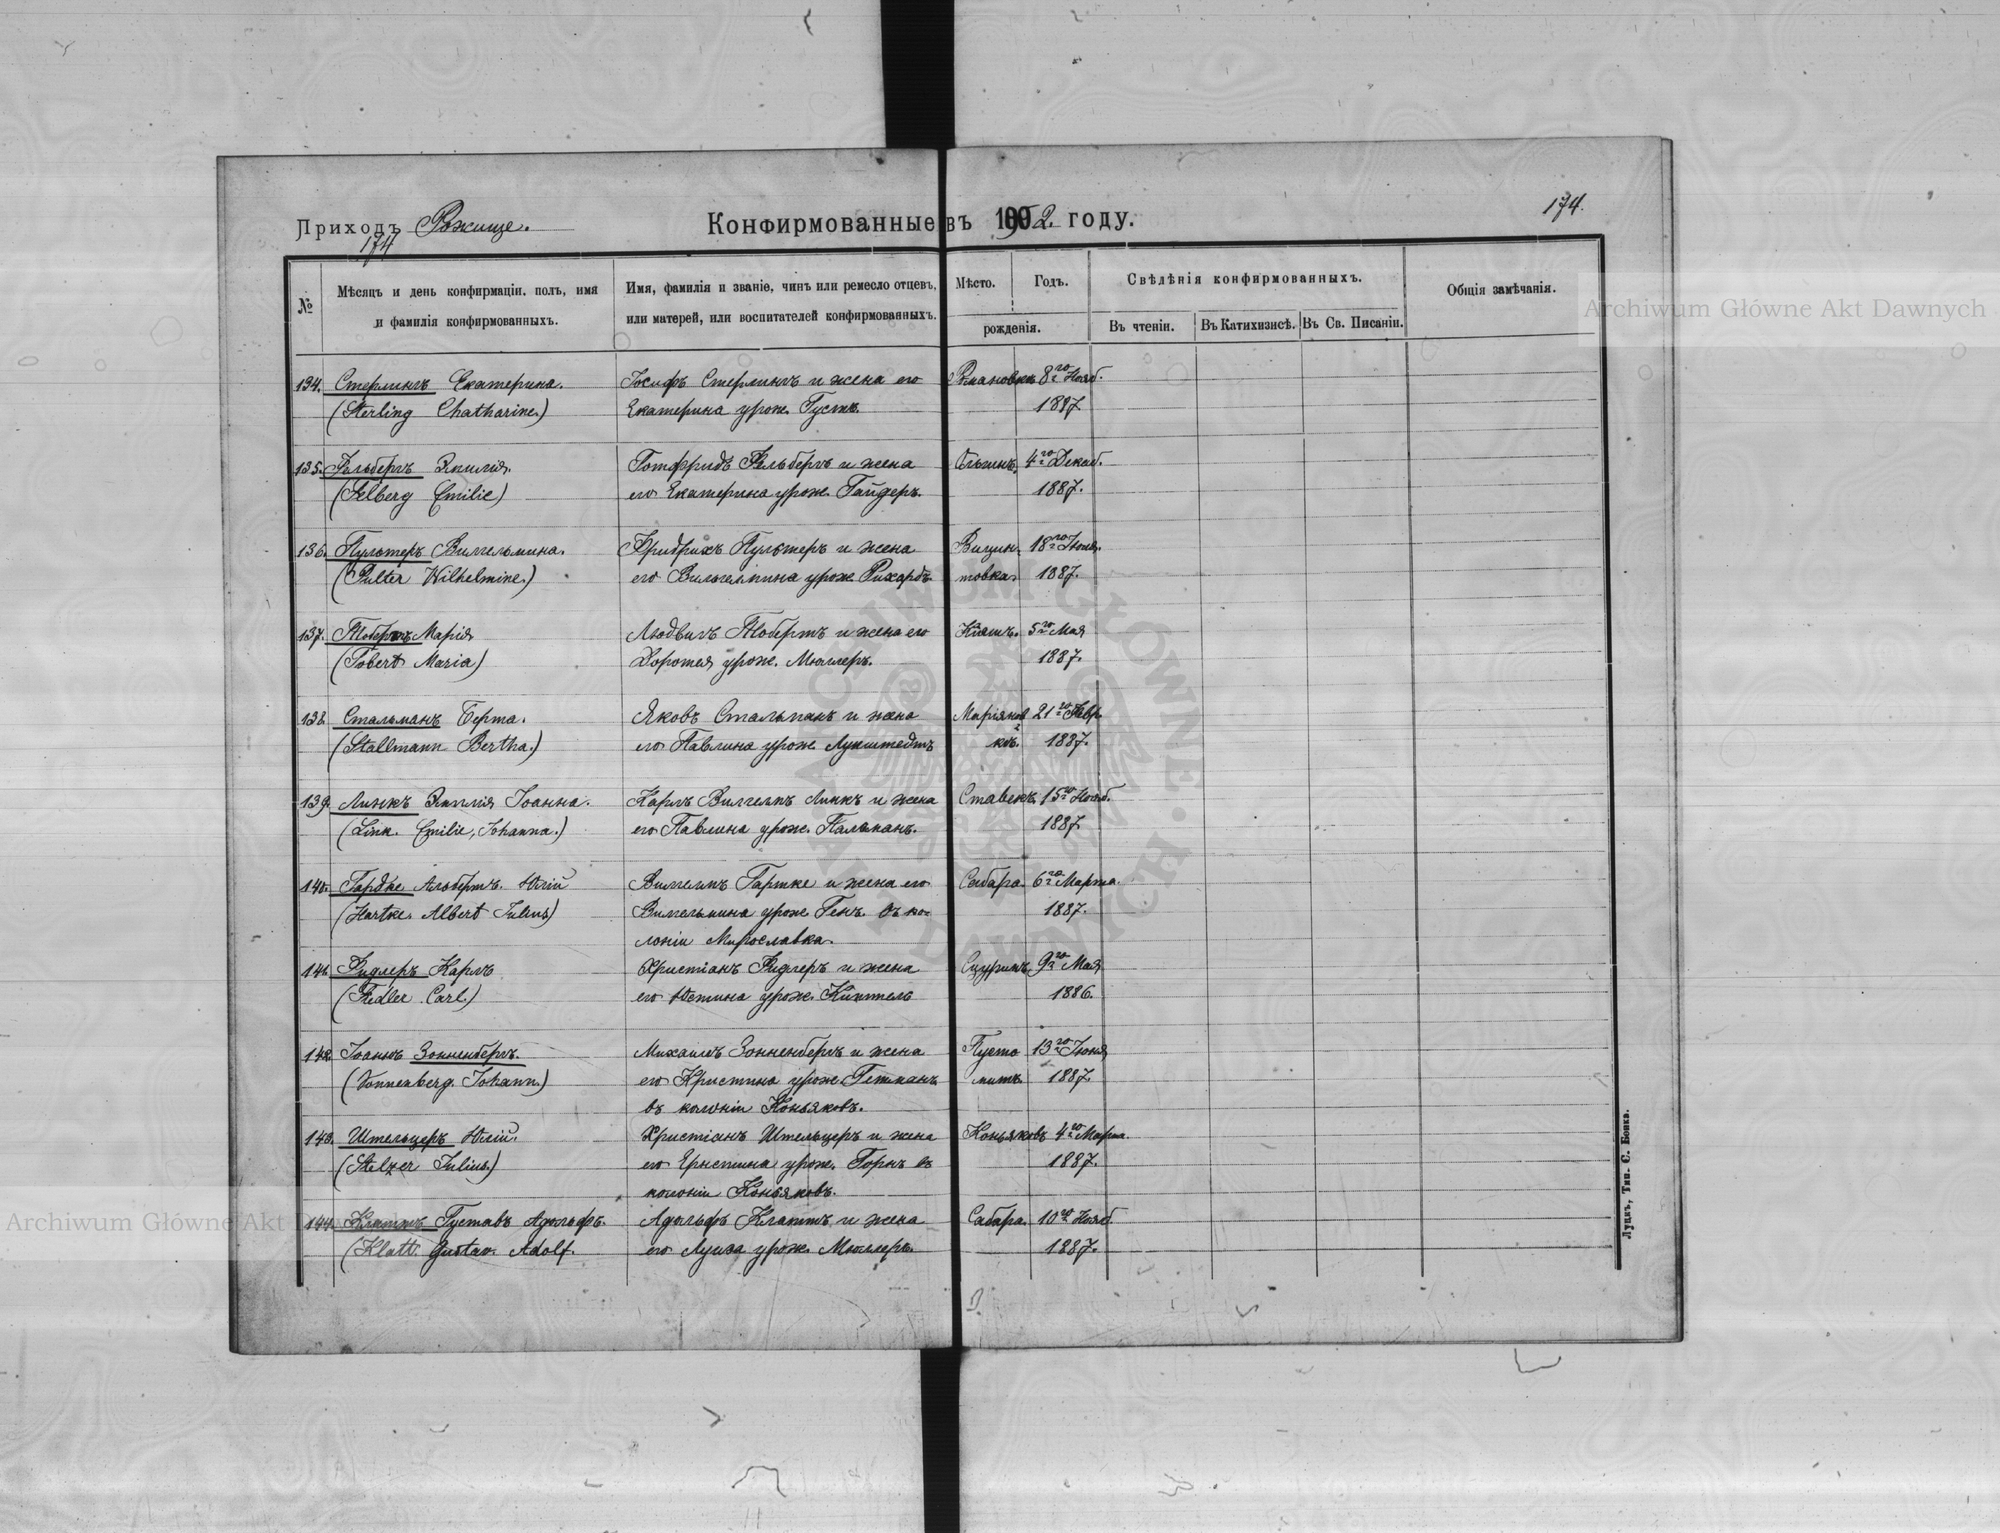 174.
Приходъ Рожище.
174
Конфирмованные въ 1902. году.
№
Мѣсяцъ и день конфирмаціи, полъ, имя и фамилія конфирмованныхъ.
Имя, фамилія и званіе, чинъ или ремесло отцевъ, или матерей, или воспитателей конфирмованныхъ.
Мѣсто. Годъ.
рожденія.
Свѣдѣнія конфирмованныхъ.
Въ чтеніи. Въ Катихизисѣ. Въ Св. Писаніи.
Общія замѣчанія.
134. Стерлингъ Екатерина. Іосифъ Стерлингъ и жена его Романовка 8го Нояб.
(Sterling Chatharine.) Екатерина урож. Густъ. 1887
135. Фельбергъ Эмилія. Готфридъ Фельбергъ и жена 4го Декаб.
(Felberg Emilie) его Екатерина урож. Гайдеръ. 1887.
136. Пультеръ Вилгельмина. Фридрихъ Пультеръ и жена 18го Іюня.
(Pulter Wilhelmine.) его Вильгелмина урож. Рихардъ. товка. 1887.
137. Тобертъ Марія Людвигъ Тобертъ и жена его 5го Мая
(Tobert Maria) Доротея урож. Мюллеръ. 1887.
138. Стальманъ Берта. Яковъ Стальманъ и жена Маріянов 21го Февр.
(Stallmann Bertha.) его Павлина урож. ка. 1887.
139. Линкъ Эмилія Іоанна. Карлъ Вилгелмъ Линкъ и жена Ставекъ 15го Нояб.
(Link. Emilie, Johanna.) его Павлина урож. Пальманъ. 1887
140. Гардке Альбертъ. Юлій Вилгелмъ Гартке и жена его Сабара. 6го Марта.
(Hartke. Albert Julius) Вилгельмина урож. Генъ. въ ко- 1887.
лоніи Мирославка.
141. Фидлеръ Карлъ Христіанъ Фидлеръ и жена 9го Мая
(Fiedler Carl.) его Юстина урож. 1886.
142. Іоаннъ Зонненбергъ. Михаилъ Зонненбергъ и жена Пусто 13го Іюня
(Sonnenberg. Johann.) его Кристина урож. Гетманъ митъ. 1887.
въ колоніи Коньяковъ.
143. Штельцеръ Юлій. Христіанъ Штельцеръ и жена Коньяковъ 4го Марта.
(Stelzer Julius.) его Ернстина урож. Горнъ въ 1887.
колоніи Коньяковъ.
144. Клаттъ Густавъ Адольфъ. Адольфъ Клаттъ и жена Сабара. 10го Нояб.
(Klatt. Gustav. Adolf. его Луиза урож. Мюллеръ. 1887.
Луцкъ, Тип. С. Бокка.
Archiwum Główne Akt Dawnych
Archiwum Główne Akt Dawnych
ARCHIWUM GŁÓWNE AKT DAWNYCH